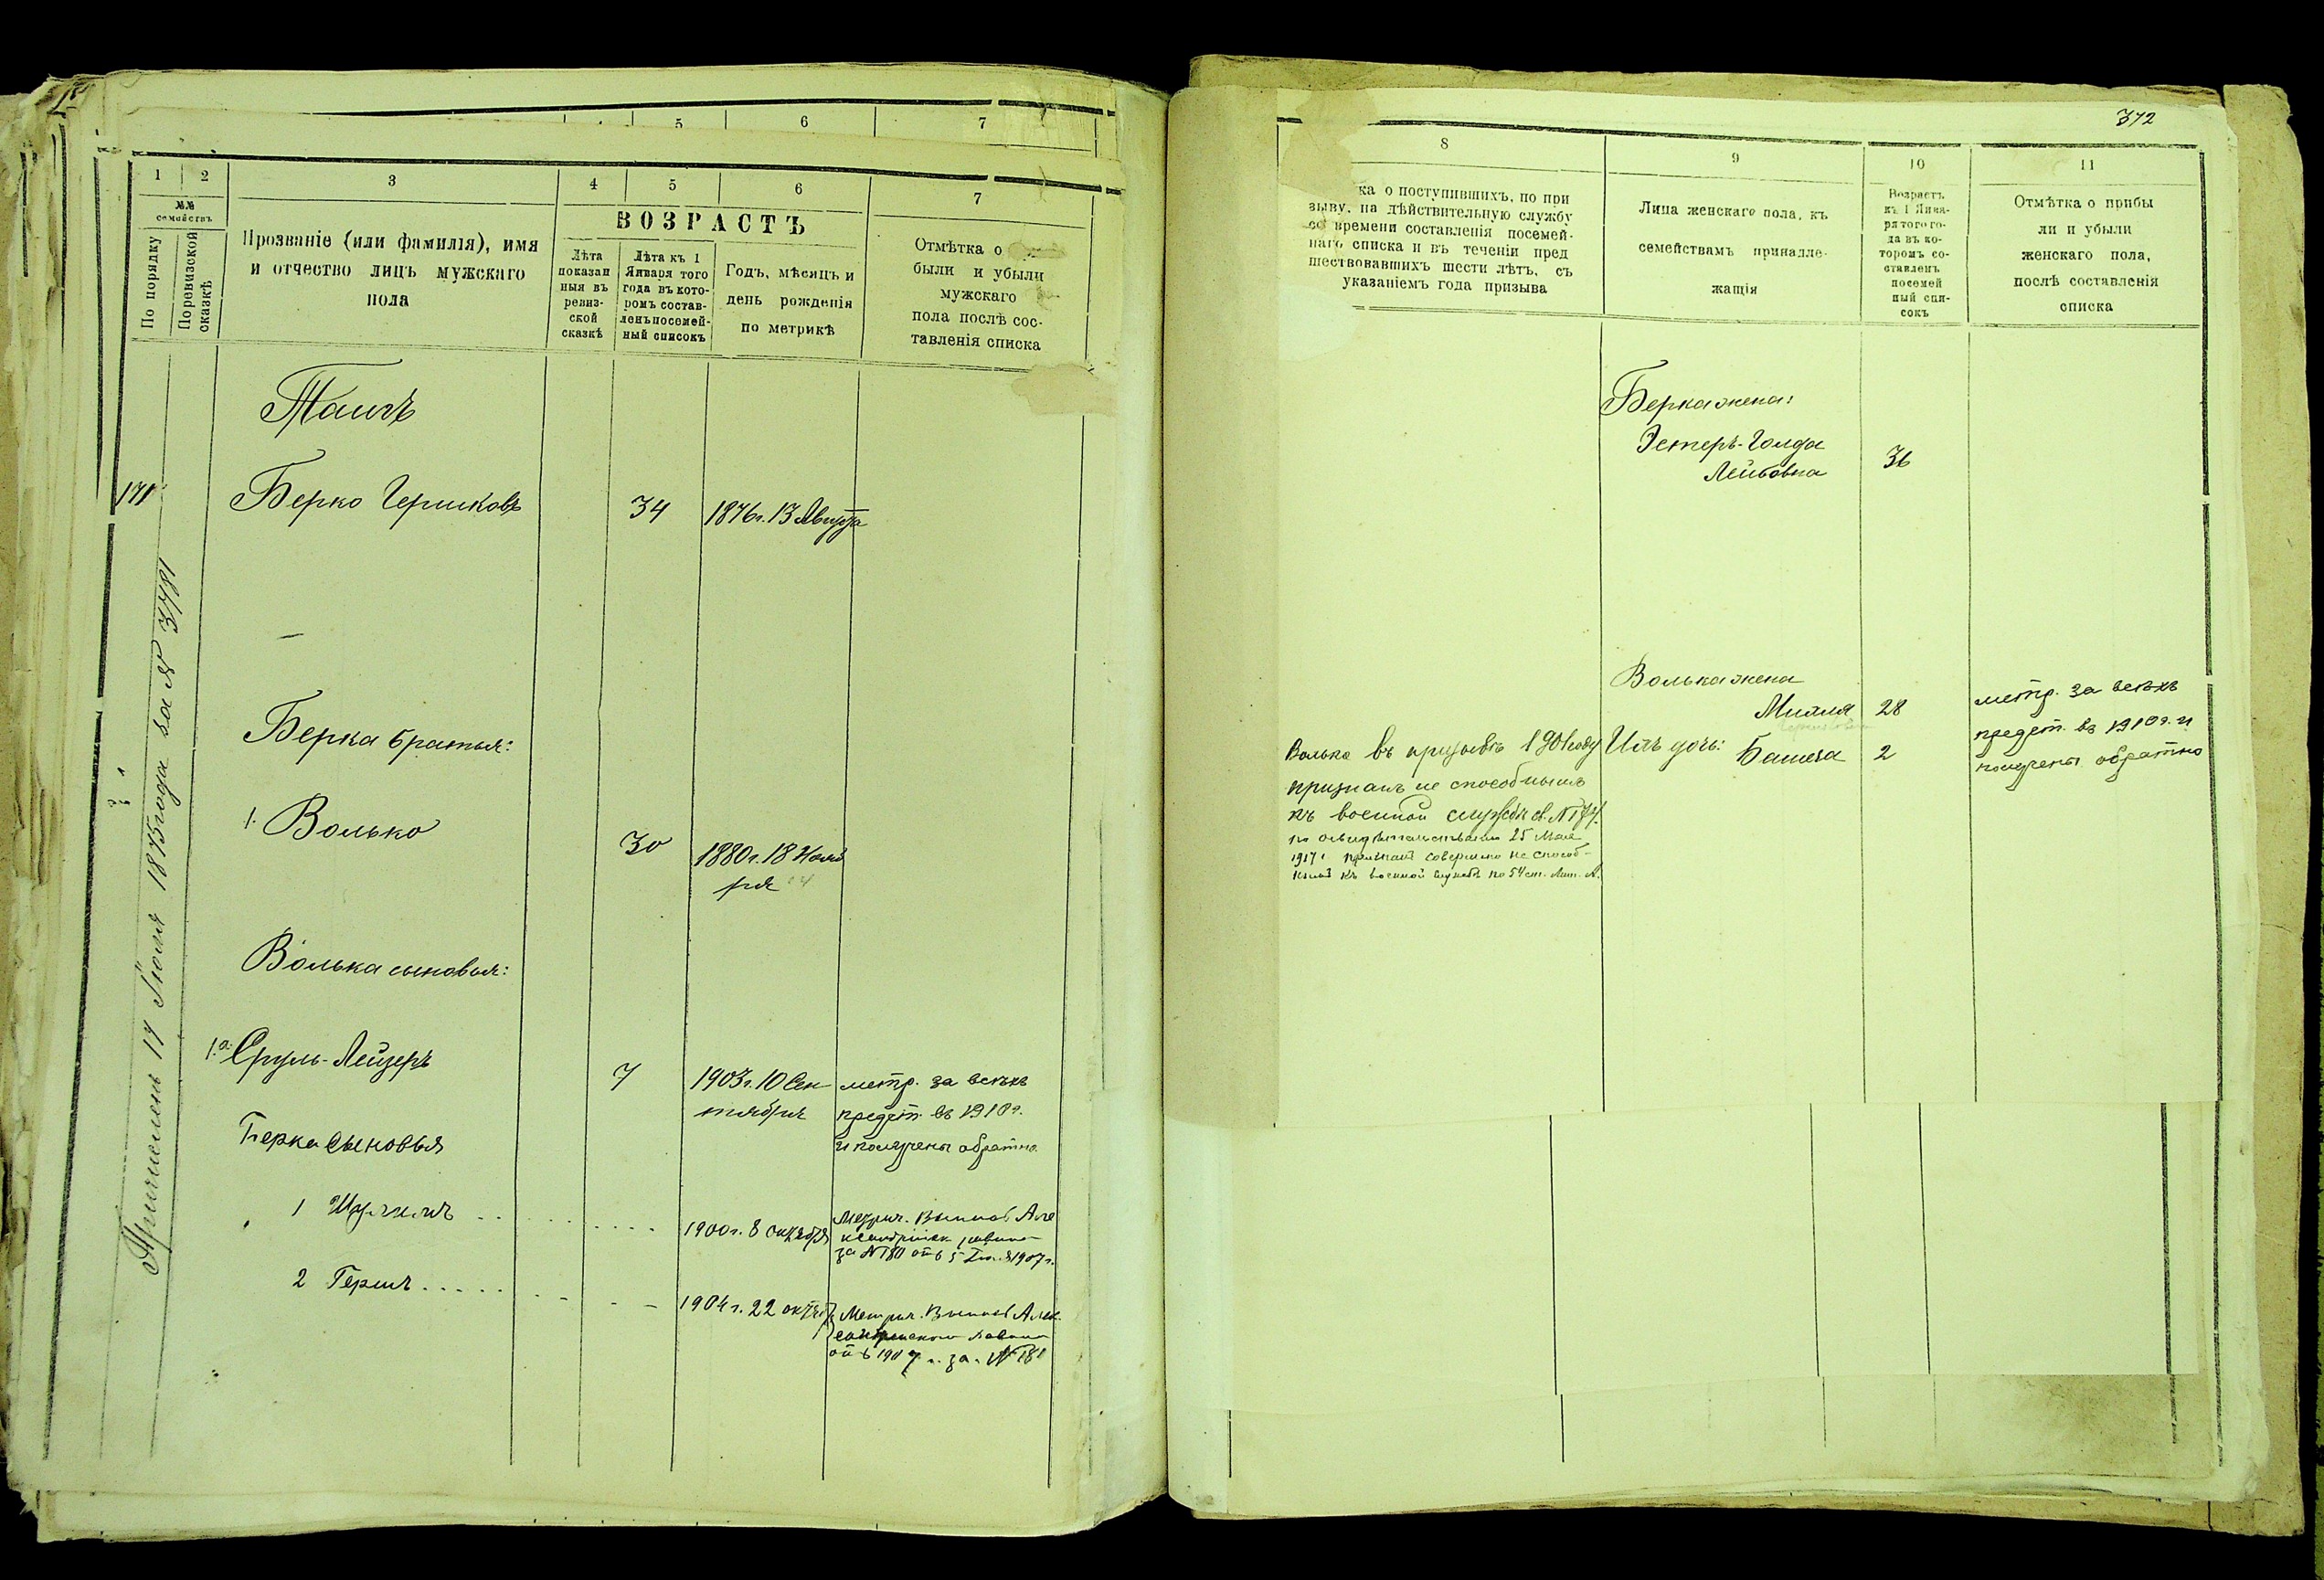 5 6 7
1 2 3 4 5 6 7
№№ семействъ
По порядку
По ревизской сказкѣ
Прозваніе (или фамилія), имя
и отчество лицъ мужскаго
пола
ВОЗРАСТЪ
Лѣта
показан
ныя въ
ревиз-
ской
сказкѣ
Лѣта къ 1
Января того
года въ кото-
ромъ состав-
ленъ посемей-
ный списокъ
Годъ, мѣсяцъ и
день рожденія
по метрикѣ
Отмѣтка о
были и убыли
мужскаго
пола послѣ сос-
тавленія списка
171
Берко Гершковъ 34 1876г. 13 Августа
Берка братья:
1. Волько 30 1880г. 18 Нояб
ря
Волька сыновья:
1.а Сруль-Лейзеръ 7 1903г. 10 Сен
тября
метр. за всѣхъ
предст. въ 1910г.
и получены обратно
Берка Сыновья
1 1900г. 8 Октября
Метрич. Выпись Але
за № 180 отъ 5 1907г.
2 Герш 1904г. 22 октяб
Метрич. Выпись Алек
отъ 1907 г. за №181
Причисленъ 17 Іюля 1875 года за №
372
8 9 10 11
ка о поступившихъ, по при
зыву, на дѣйствительную службу
со времени составленія посемей-
наго списка и въ теченіи пред
шествовавшихъ шести лѣтъ, съ
указаніемъ года призыва
Лица женскаго пола, къ
семействамъ принадле-
жащія
Возрастъ
къ 1 Янва-
ря того го-
да въ ко-
торомъ со-
ставленъ
посемей
ный спи-
сокъ
Отмѣтка о прибы
ли и убыли
женскаго пола,
послѣ составленія
списка
Берка жена:
Эстеръ-Голда
Лейбовна 36
Волька жена
28
Ихъ дочь: 2
метр. за всѣхъ
предст. въ 1910г. и
получены обратно
Волько въ призывѣ 1901 году
признанъ не способнымъ
къ военной службѣ св. №
по освидѣтельствовании 25 Мая
1917г признанъ совершенно не способ-
нымъ къ военной службѣ по 54 ст. Лит. А.